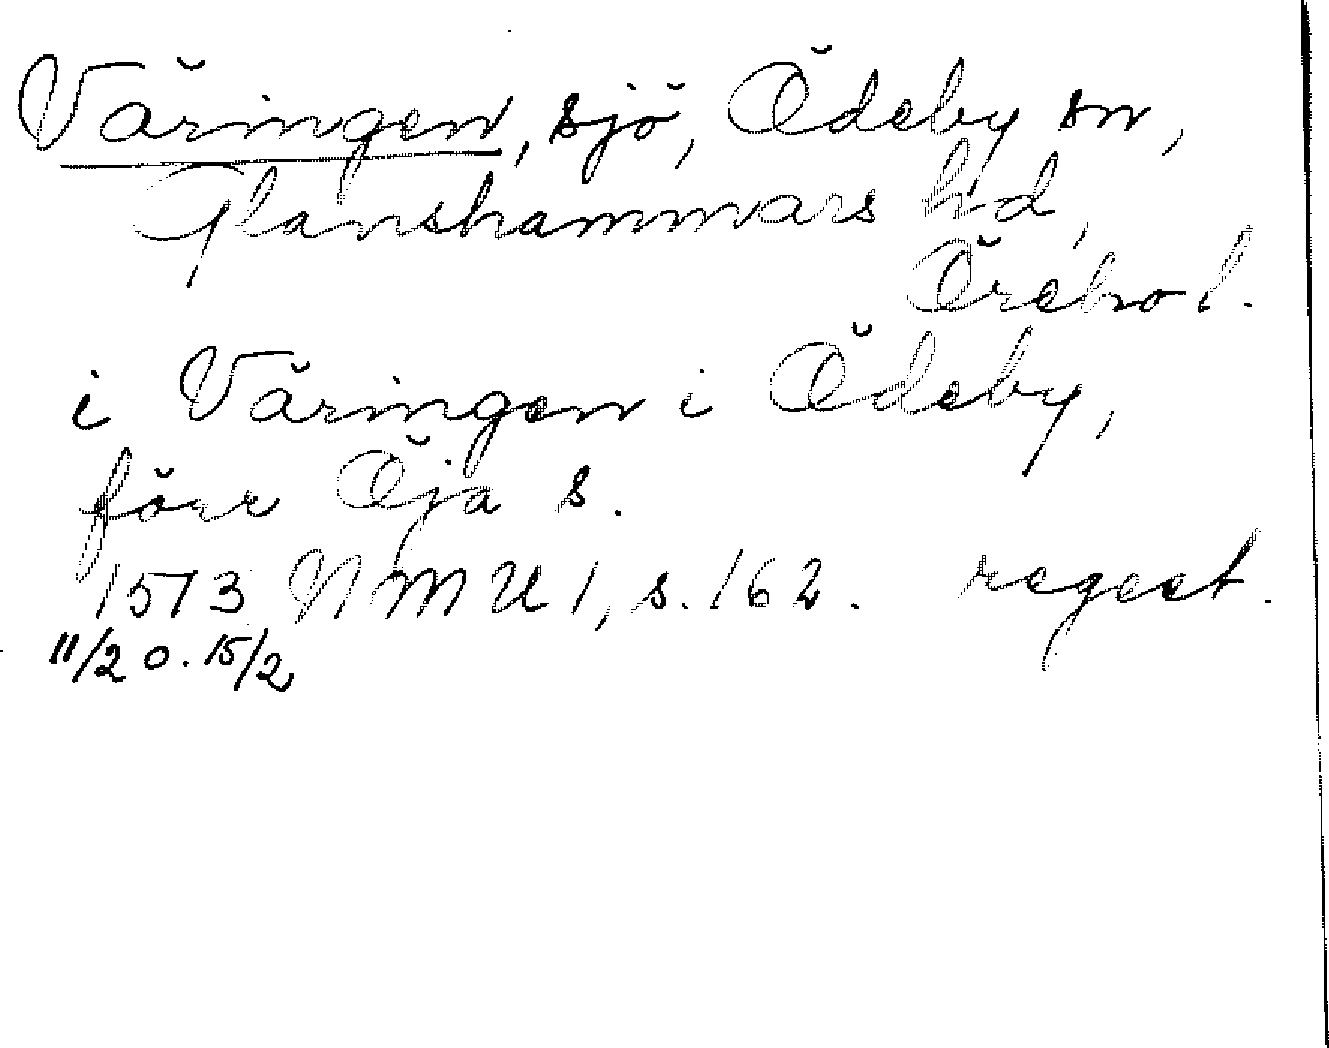 Väringen, sjö, Ödeby sn,
Glanshammars hd,
Örebro l.
i Väringen i Ödeby,
förr Öja s.
1573 NMU 1, s. 162. regest.
11/2 o. 15/2